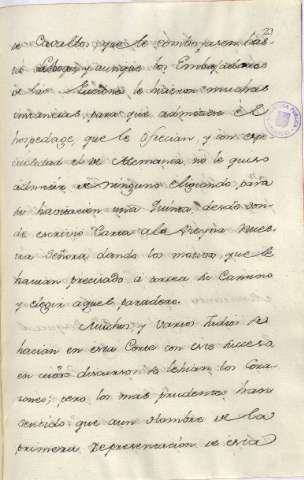 23
de Cavallos que le comboyasen has-
ta Lisboa, y aunque los Embajadores
de las hicieron muchas
instancias para que admitiese el
hospedage, que le ofrecian, y con espe-
cialidad el de Alemania, no le quiso
admitir de ninguno eligiendo, para
su havitacion una Quinta, desde don-
de escrivio Carta a la Reyna Nues-
tra Señora dando los motivos, que le
havian precisado a de Camino
y elegir aquel paradero.
Muchos y varios Juicios se
hacian en esta Corte con este suceso
en cuios discursos se los Cora-
zones; pero los mas prudentes, han
sentido que aun hombre de la
primera representacion de esta